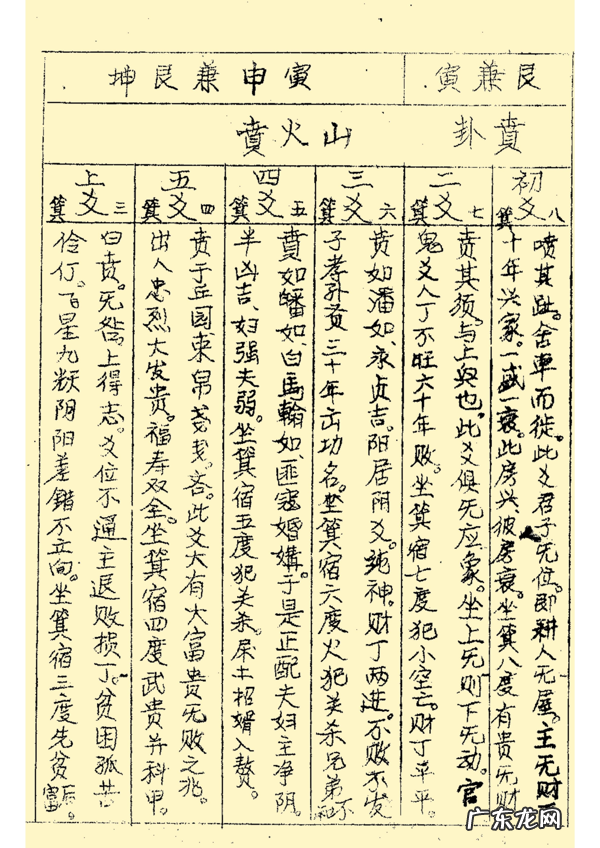 艮兼寅
寅申兼艮坤
賁卦
山火賁
初爻
箕八
喷其趾。舍車而徒。此爻君子无位。即耕人无屋。主无财
箕十年兴家。一盛一衰。此房兴彼房衰。坐箕八度有贵无财
二爻
箕七
贲其须。与上興也。此爻俱无应象。坐上无则下无动。官
鬼爻人丁不旺六十年败。坐箕宿七度犯小空亡。财丁平平。
三爻
箕六
贲如潘如。永贞吉。阳居阴爻。纯神。财丁两进。不败不发
子孝孙贤三十年出功名。坐箕宿六度火犯关杀兄弟不和
四爻
箕五
賁如皤如。白馬翰如。匪寇婚媾。于是正配夫妇主净阴。
半凶吉、妇强夫弱。坐箕宿五度犯关杀。尿土招婿入赘。
五爻
箕四
贲于丘园。束帛戋戋。吝。此爻大有大富贵无败之兆。
出人忠烈大发贵。福寿双全。坐箕宿四度武贵并科甲。
上爻
箕三
白贲。无咎。上得志。爻位不通主退败损丁。贫困孤苦
伶仃。飞星九狱阴阳差错不立向。坐箕宿三度先贫后富。
广东龙网